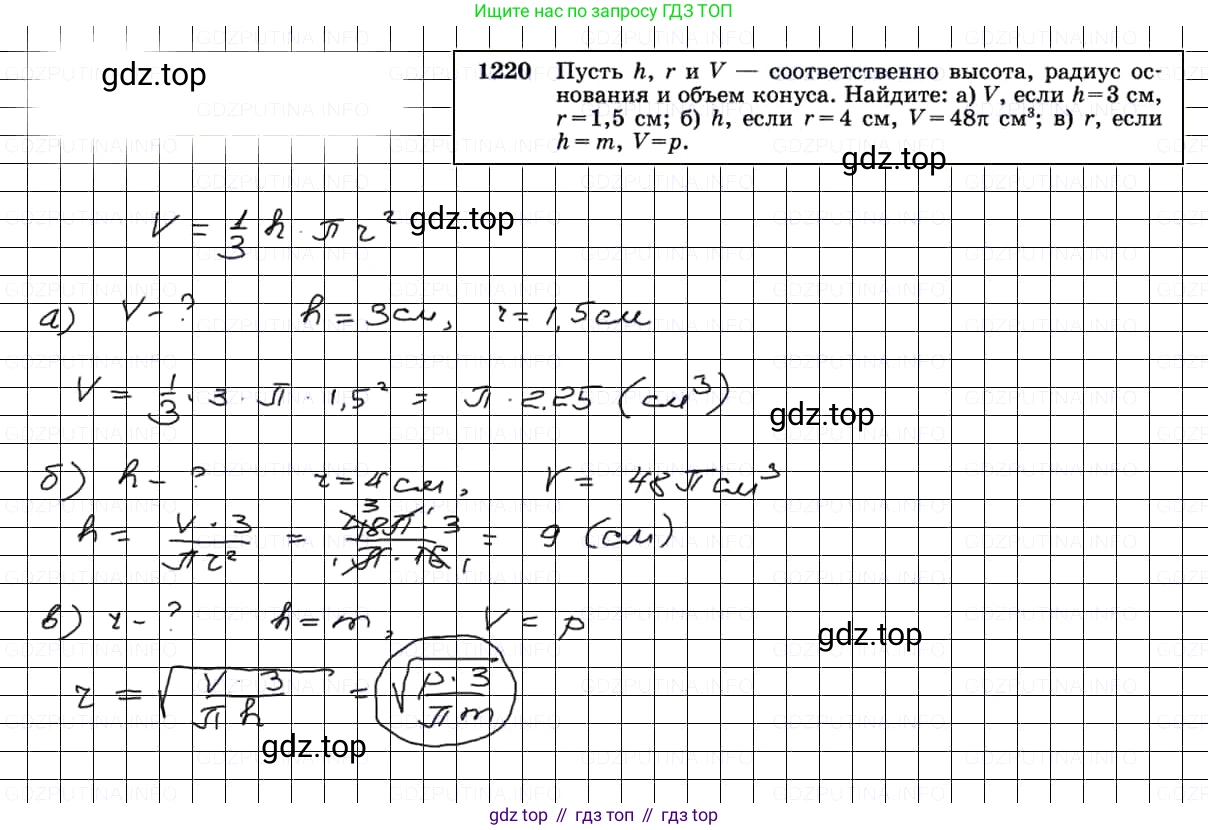 Ищите нас по запросу ГДЗ ТОП
gdz.top
1220 Пусть h, r и V — соответственно высота, радиус ос-
нования и объем конуса. Найдите: а) V, если h=3 см,
r=1,5 см; б) h, если r=4 см, V=48π см³; в) r, если
h=m, V=p.
gdz.top
V = 1/3 h · π r² gdz.top
а) V - ? h = 3 см, r = 1,5 см
V = 1/3 · 3 · π · 1,5² = π · 2.25 (см³)
gdz.top
б) h - ? r = 4 см, V = 48 π см³
h = V · 3 / π r² = 48π · 3 / π · 16 = 9 (см)
в) r - ? h = m, V = p
gdz.top
r = √(V · 3 / π h) = √(p · 3 / π m)
gdz.top
gdz top // гдз топ // gdz top